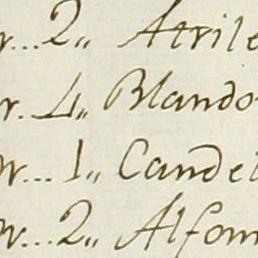 r... 2,, Atrile
r.. 4,, Blando
r... 1,, Cande
r... 2,, Alfom